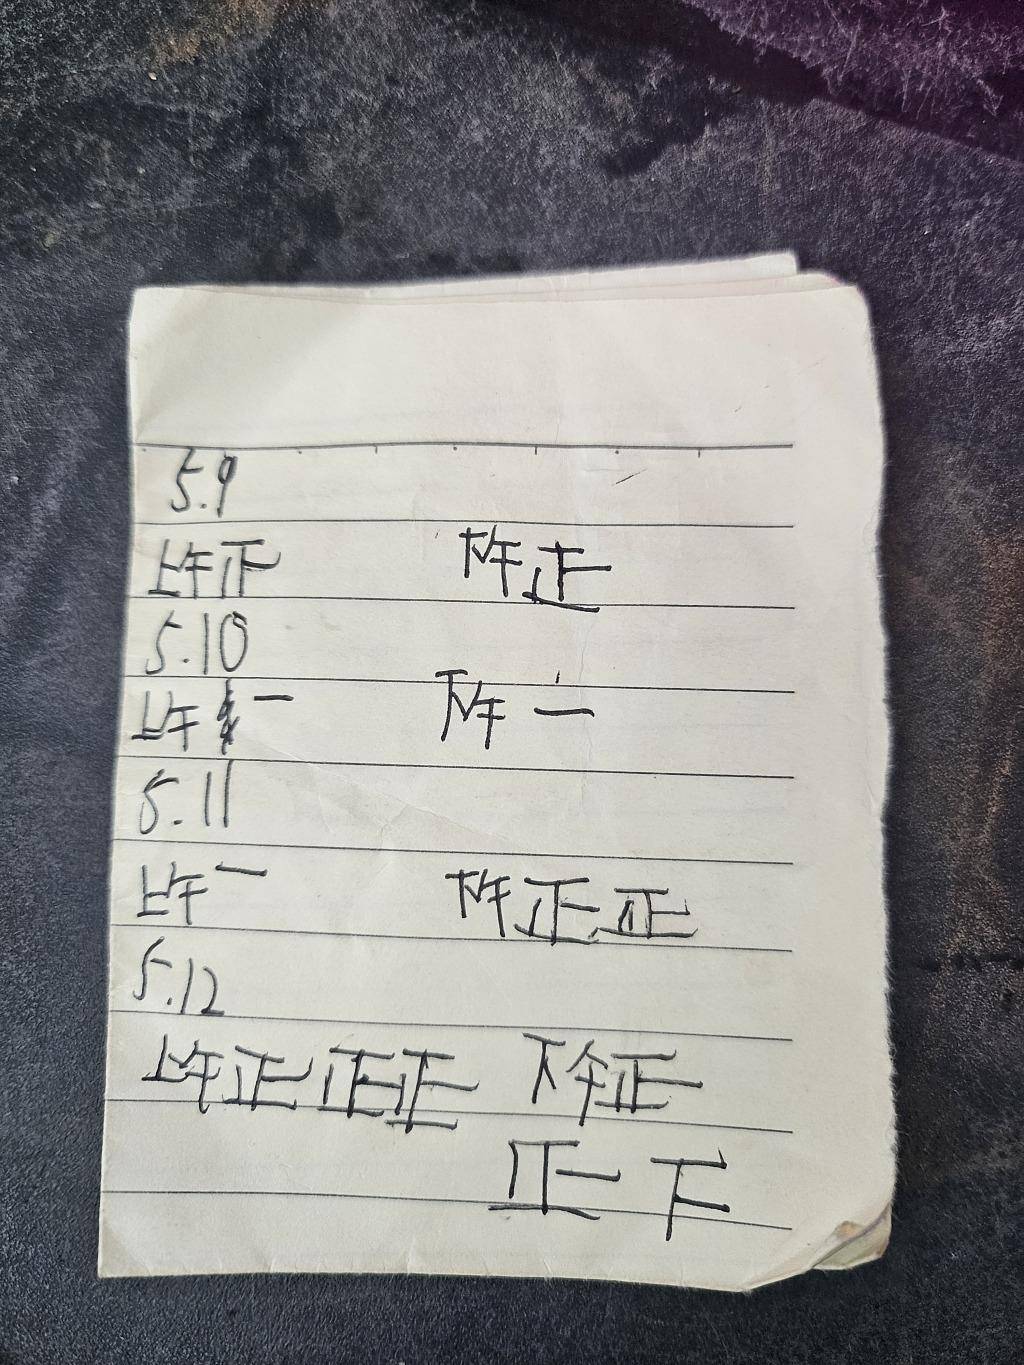 5.9
上午正 下午正
5.10
上午 一 下午 一
5.11
上午一 下午正正
5.12
上午正正正 下午正
正下